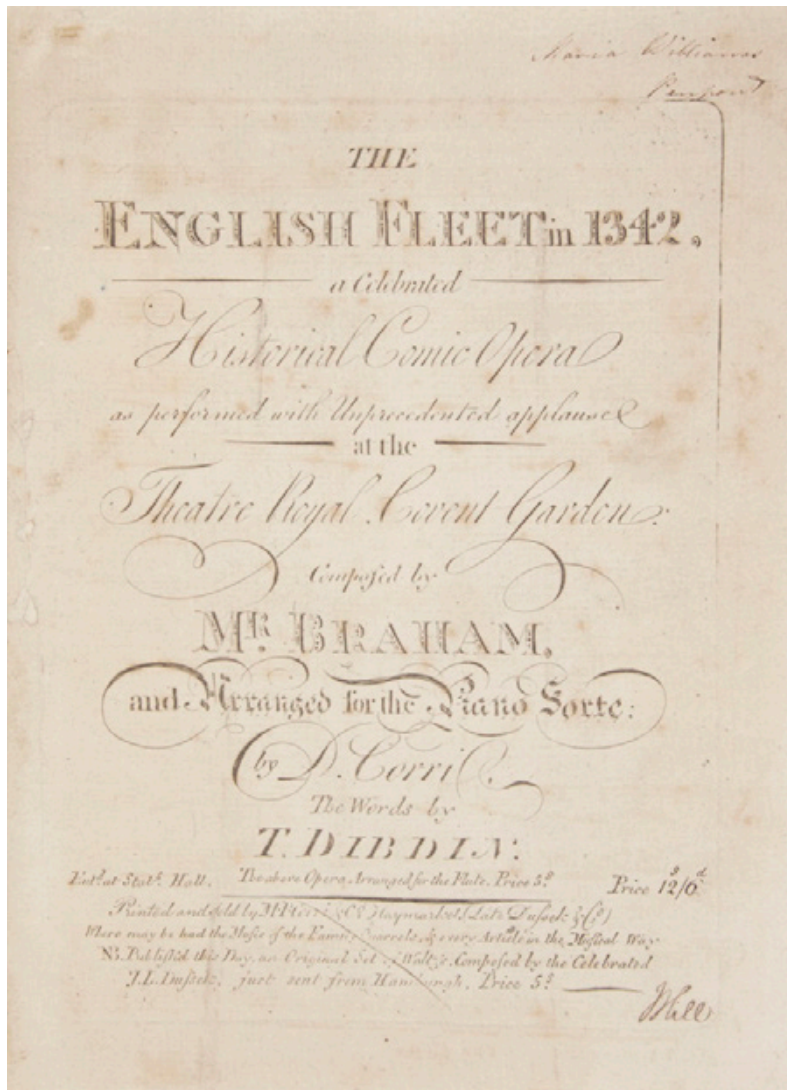 Maria Williams
Penpont
THE
ENGLISH FLEET in 1342,
a Celebrated
Historical Comic Opera
as performed with Unprecedented applause
at the
Theatre Royal Covent Garden:
Composed by
MR. BRAHAM,
and Arranged for the Piano Forte:
by D. Corri.
The Words by
T. DIBDIN:
Ent.d at Stat.s Hall. The above Opera Arranged for the Flute. Price 5s Price 12s/6d
Printed and sold by M. Corri & Co. Haymarket (Late Dussek & Co)
Where may be had the Music of the Family Quarrels, & every Article in the Musical Way
NB. Publish'd this Day, an Original Set of Waltz's Composed by the Celebrated
J.L. Dussek, just sent from Hamburgh, Price 5s